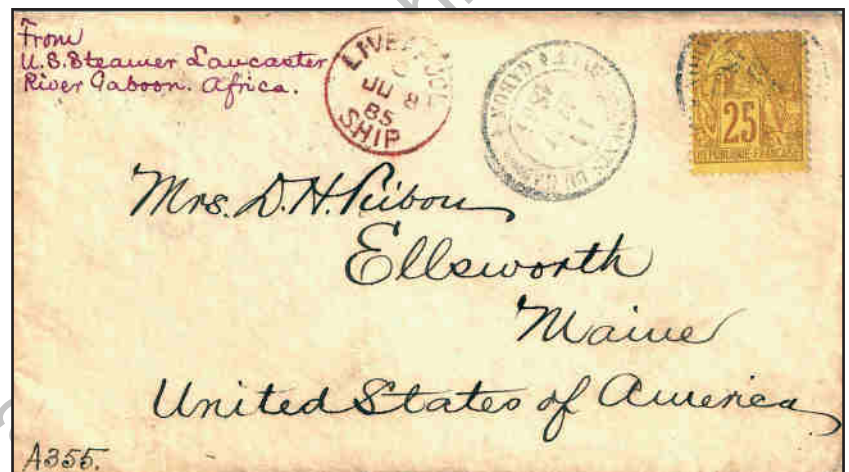 From
U.S. Steamer Lancaster
River Gaboon. Africa.
LIVERPOOL
JU 8
85
SHIP
GABON
25
REPUBLIQUE FRANÇAISE
Mrs. D. H.
Ellsworth
Maine
United States of America
A355.